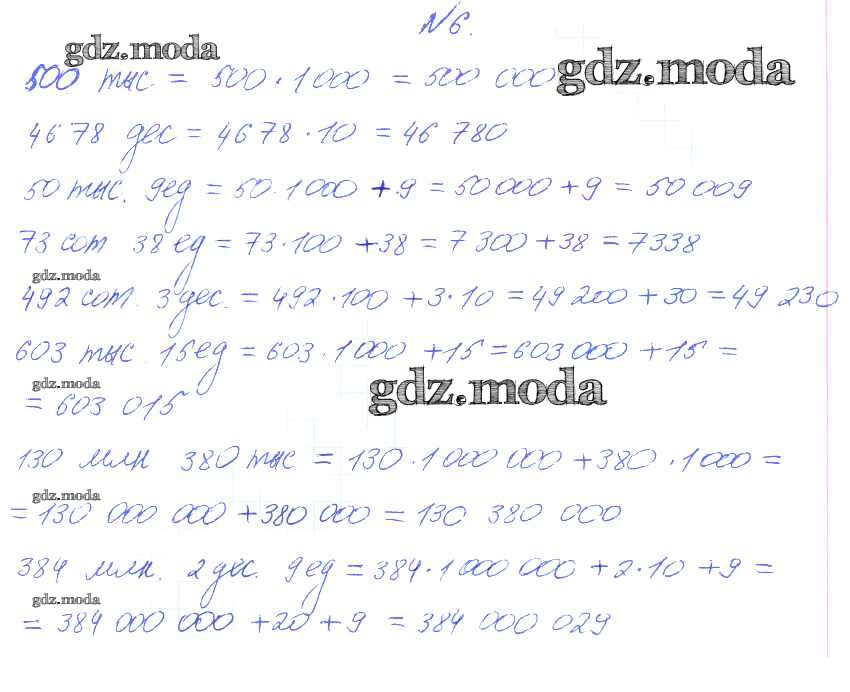 №6.
gdz.moda
500 тыс. = 500·1000 = 500 000
gdz.moda
4678 дес = 4678·10 = 46 780
50 тыс. 9ед = 50·1000 + 9 = 50000 + 9 = 50 009
73 сот 38 ед = 73·100 + 38 = 7 300 + 38 = 7338
gdz.moda
492 сот. 3 дес. = 492·100 + 3·10 = 49 200 + 30 = 49 230
603 тыс 15ед = 603·1000 + 15 = 603 000 + 15 =
gdz.moda
gdz.moda
= 603 015
130 млн 380 тыс = 130·1 000 000 + 380·1000 =
gdz.moda
= 130 000 000 + 380 000 = 130 380 000
384 млн. 2 дес. 9ед = 384·1 000 000 + 2·10 + 9 =
gdz.moda
= 384 000 000 + 20 + 9 = 384 000 029